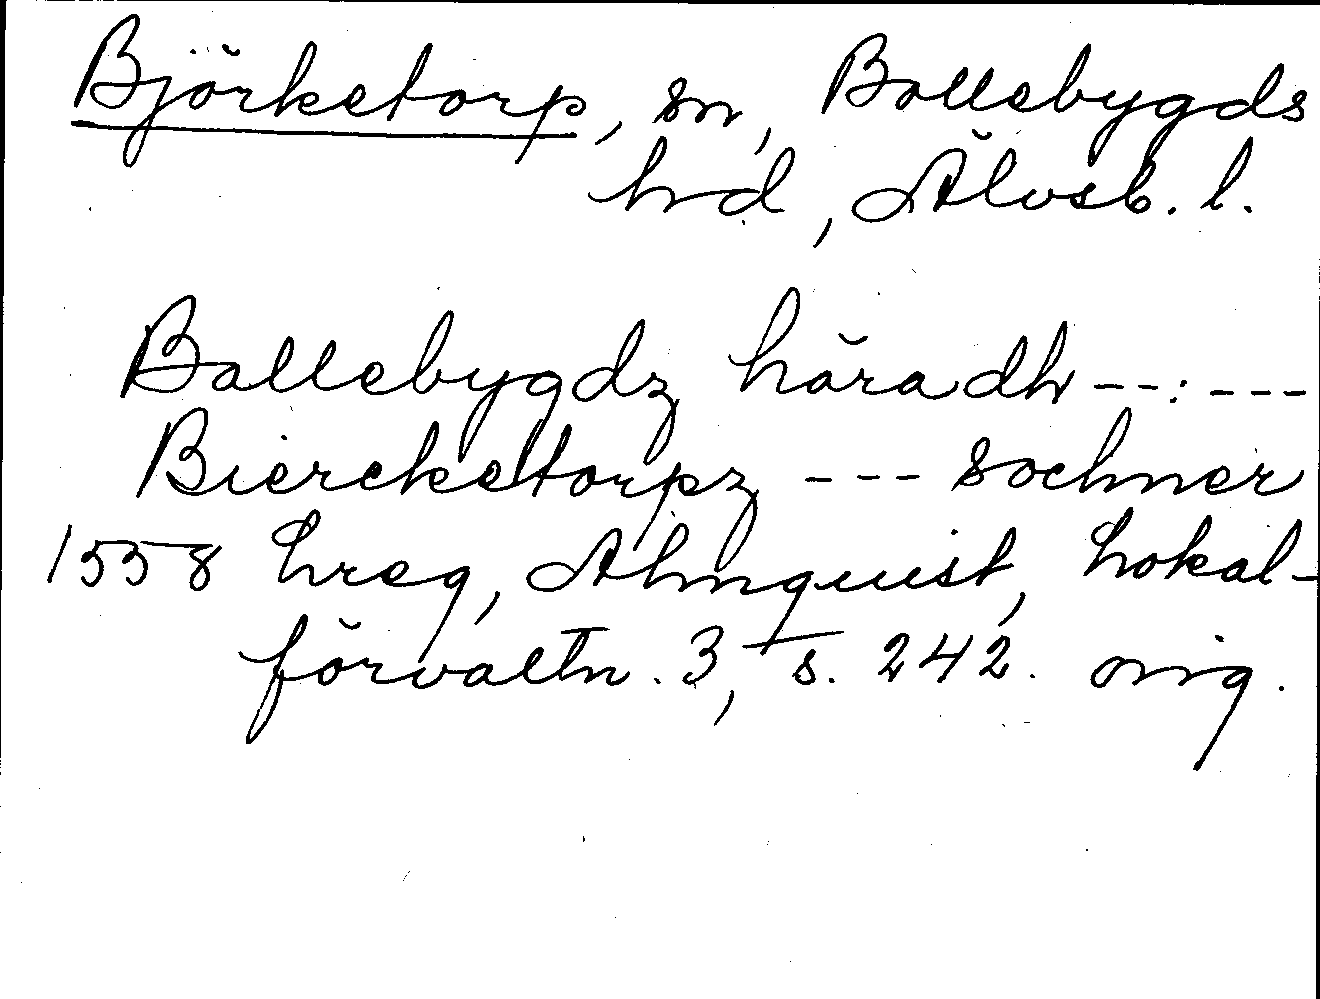 Björketorp, sn, Bollebygds
hd, Älvsb. l.
Bollebygdz häradh --:---
Biercketorpz --- sochner
1558 Lreg, Almquist, Lokal-
förvaltn. 3, s. 242. orig.